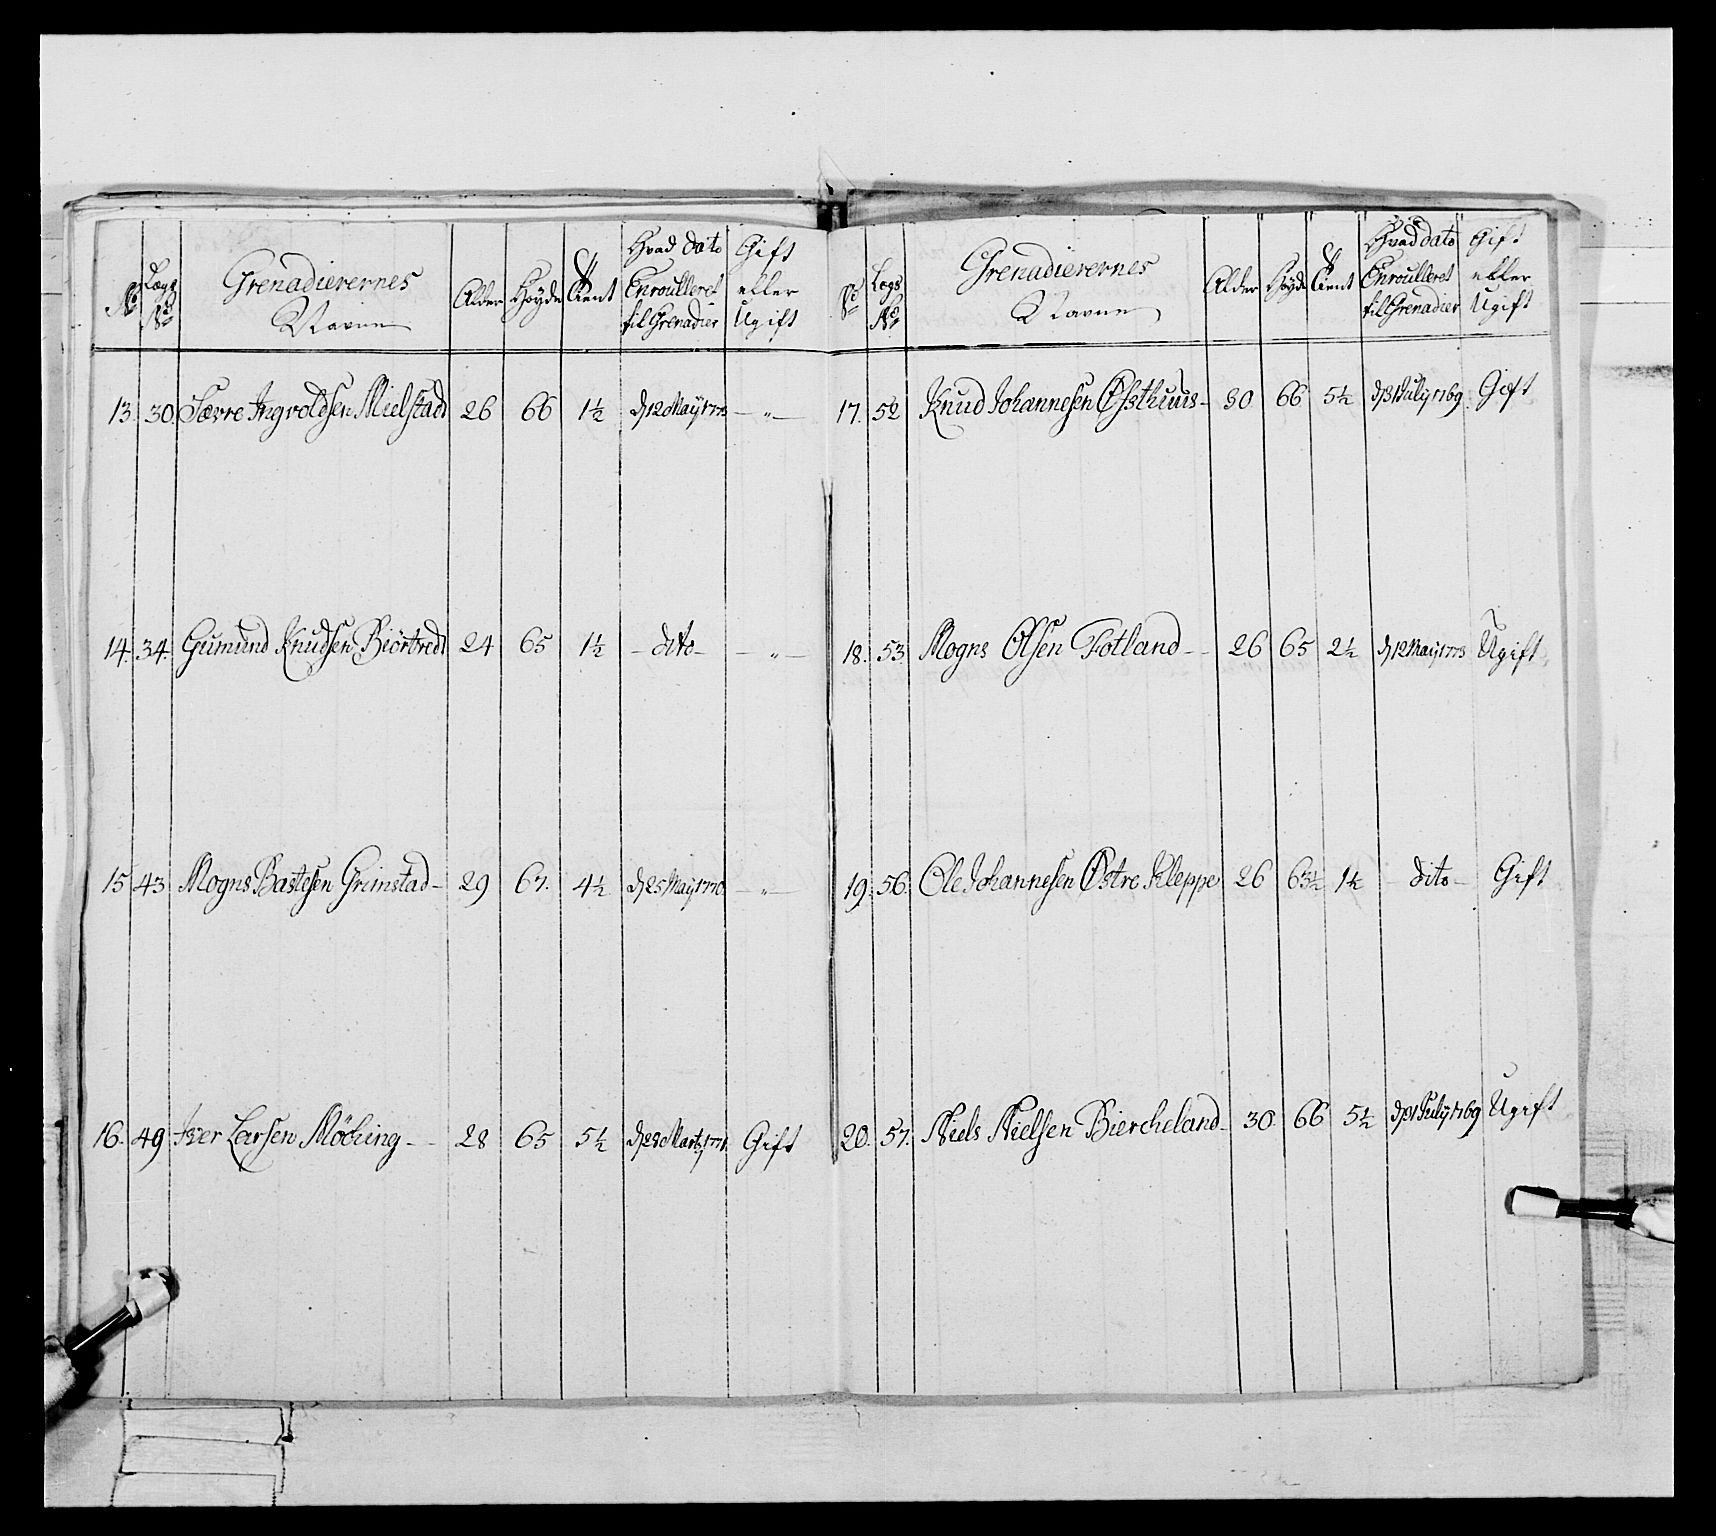 No Lægs No Grenadierernes Navne Alder Høyde Tient Hvad dato Enroulleret til Grenadier Gift eller Ugift
13. 30. Sævre Ingvoldsen Mielstad 26 66 1½ d 12 May 1773 — " —
14. 34. Gumund Knudsen Biörtvedt 24 65 1½ – dito – — " —
15 43 Mogns Bastesen Grimstad – 29 67. 4½ d 25 May 1770 — " —
16. 49 Iver Larsen Möching – 28 65 5½ Gift
No Lægs No Grenadierernes Navne Alder Høyde Tient Hvad dato Enroulleret til Grenadier Gift eller Ugift
17. 52 Knud Johannesen Østhuus – 30 66 5½ d 31 July 1769 Gift
18. 53 Mogns Olsen Fotland – 26 65 2½ d 12 May 1773 Ugift
19. 56. Ole Johannesen Østre Kleppe 26 63½ 1½ dito – Gift
20. 57. Niels Nielsen Biercheland – 30 66 5½ d 31 July 1769 Ugift